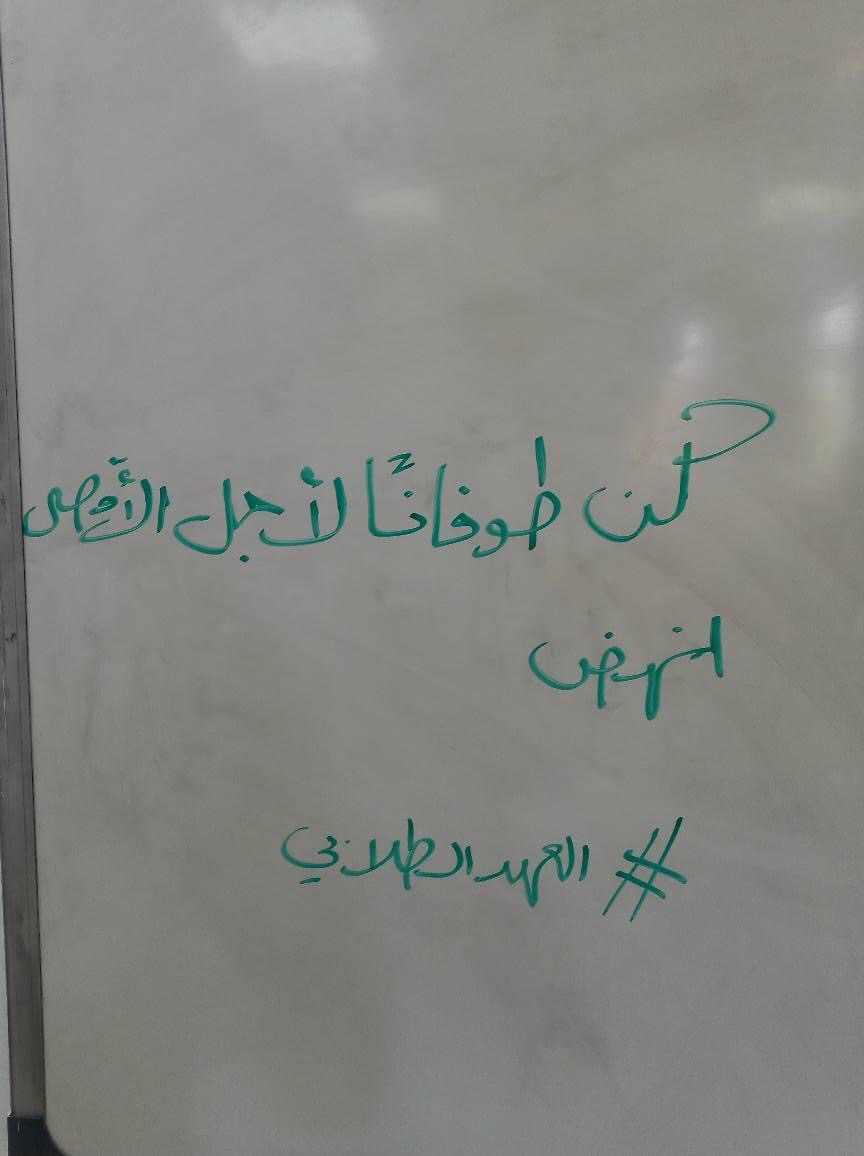 كن طوفانًا لأجل الأقصى
انهض
# العهد الطلابي